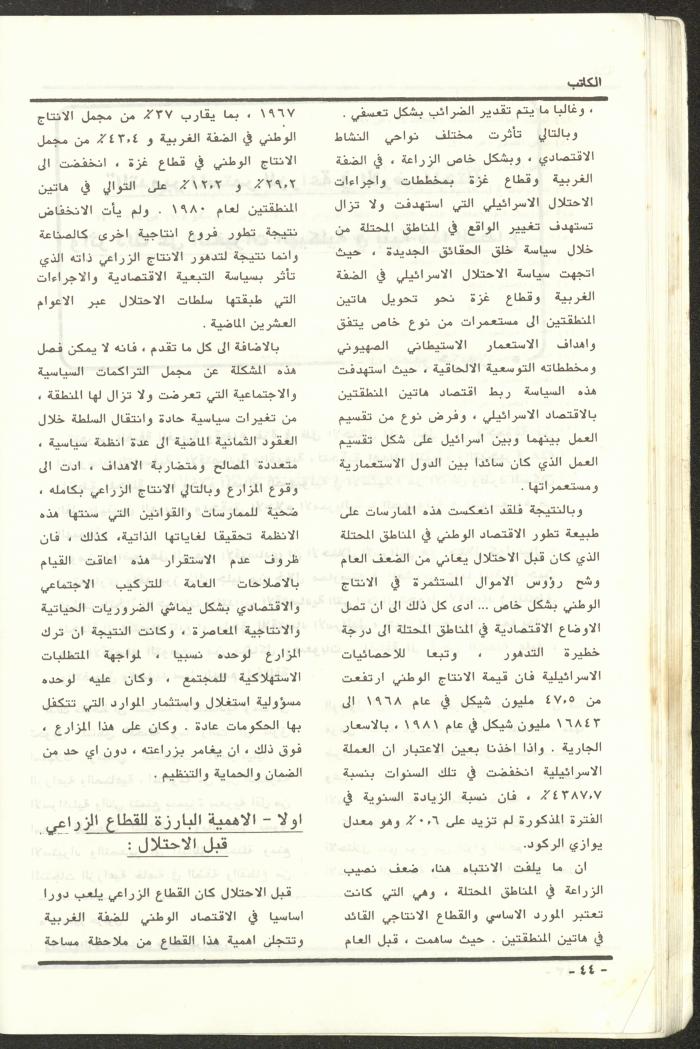 الكاتب
، وغالبا ما يتم تقدير الضرائب بشكل تعسفي .
وبالتالي تأثرت مختلف نواحي النشاط
الاقتصادي ، وبشكل خاص الزراعة ، في الضفة
الغربية وقطاع غزة بمخططات واجراءات
الاحتلال الاسرائيلي التي استهدفت ولا تزال
تستهدف تغيير الواقع في المناطق المحتلة من
خلال سياسة خلق الحقائق الجديدة ، حيث
اتجهت سياسة الاحتلال الاسرائيلي في الضفة
الغربية وقطاع غزة نحو تحويل هاتين
المنطقتين الى مستعمرات من نوع خاص يتفق
واهداف الاستعمار الاستيطاني الصهيوني
ومخططاته التوسعية الالحاقية ، حيث استهدفت
هذه السياسة ربط اقتصاد هاتين المنطقتين
بالاقتصاد الاسرائيلي ، وفرض نوع من تقسيم
العمل بينهما وبين اسرائيل على شكل تقسيم
العمل الذي كان سائدا بين الدول الاستعمارية
ومستعمراتها .
وبالنتيجة فلقد انعكست هذه الممارسات على
طبيعة تطور الاقتصاد الوطني في المناطق المحتلة
الذي كان قبل الاحتلال يعاني من الضعف العام
وشح رؤوس الاموال المستثمرة في الانتاج
الوطني بشكل خاص ... ادى كل ذلك الى ان تصل
الاوضاع الاقتصادية في المناطق المحتلة الى درجة
خطيرة التدهور ، وتبعا للأحصائيات
الاسرائيلية فان قيمة الانتاج الوطني ارتفعت
من ٤٧,٥ مليون شيكل في عام ١٩٦٨ الى
١٦٨٤٣ مليون شيكل في عام ١٩٨١ ، بالاسعار
الجارية . واذا اخذنا بعين الاعتبار ان العملة
الاسرائيلية انخفضت في تلك السنوات بنسبة
٤٣٨٧,٧٪ ، فان نسبة الزيادة السنوية في
الفترة المذكورة لم تزيد على ٠,٦٪ وهو معدل
يوازي الركود.
ان ما يلفت الانتباه هنا، ضعف نصيب
الزراعة في المناطق المحتلة ، وهي التي كانت
تعتبر المورد الاساسي والقطاع الانتاجي القائد
في هاتين المنطقتين . حيث ساهمت ، قبل العام
١٩٦٧ ، بما يقارب ٣٧٪ من مجمل الانتاج
الوطني في الضفة الغربية و ٤٣,٤٪ من مجمل
الانتاج الوطني في قطاع غزة ، انخفضت الى
٢٩,٢٪ و ١٢,٢٪ على التوالي في هاتين
المنطقتين لعام ١٩٨٠ . ولم يأت الانخفاض
نتيجة تطور فروع انتاجية اخرى كالصناعة
وانما نتيجة لتدهور الانتاج الزراعي ذاته الذي
تأثر بسياسة التبعية الاقتصادية والاجراءات
التي طبقتها سلطات الاحتلال عبر الاعوام
العشرين الماضية .
بالاضافة الى كل ما تقدم ، فانه لا يمكن فصل
هذه المشكلة عن مجمل التراكمات السياسية
والاجتماعية التي تعرضت ولا تزال لها المنطقة ،
من تغيرات سياسية حادة وانتقال السلطة خلال
العقود الثمانية الماضية الى عدة انظمة سياسية ،
متعددة المصالح ومتضاربة الاهداف ، ادت الى
وقوع المزارع وبالتالي الانتاج الزراعي بكامله ،
ضحية للممارسات والقوانين التي سنتها هذه
الانظمة تحقيقا لغاياتها الذاتية، كذلك ، فان
ظروف عدم الاستقرار هذه اعاقت القيام
بالاصلاحات العامة للتركيب الاجتماعي
والاقتصادي بشكل يماشي الضروريات الحياتية
والانتاجية المعاصرة ، وكانت النتيجة ان ترك
المزارع لوحده نسبيا ، لمواجهة المتطلبات
الاستهلاكية للمجتمع ، وكان عليه لوحده
مسؤولية استغلال واستثمار الموارد التي تتكفل
بها الحكومات عادة . وكان على هذا المزارع ،
فوق ذلك ، ان يغامر بزراعته ، دون اي حد من
الضمان والحماية والتنظيم .
اولا - الاهمية البارزة للقطاع الزراعي
قبل الاحتلال :
قبل الاحتلال كان القطاع الزراعي يلعب دورا
اساسيا في الاقتصاد الوطني للضفة الغربية
وتتجلى اهمية هذا القطاع من ملاحظة مساحة
- ٤٤ -